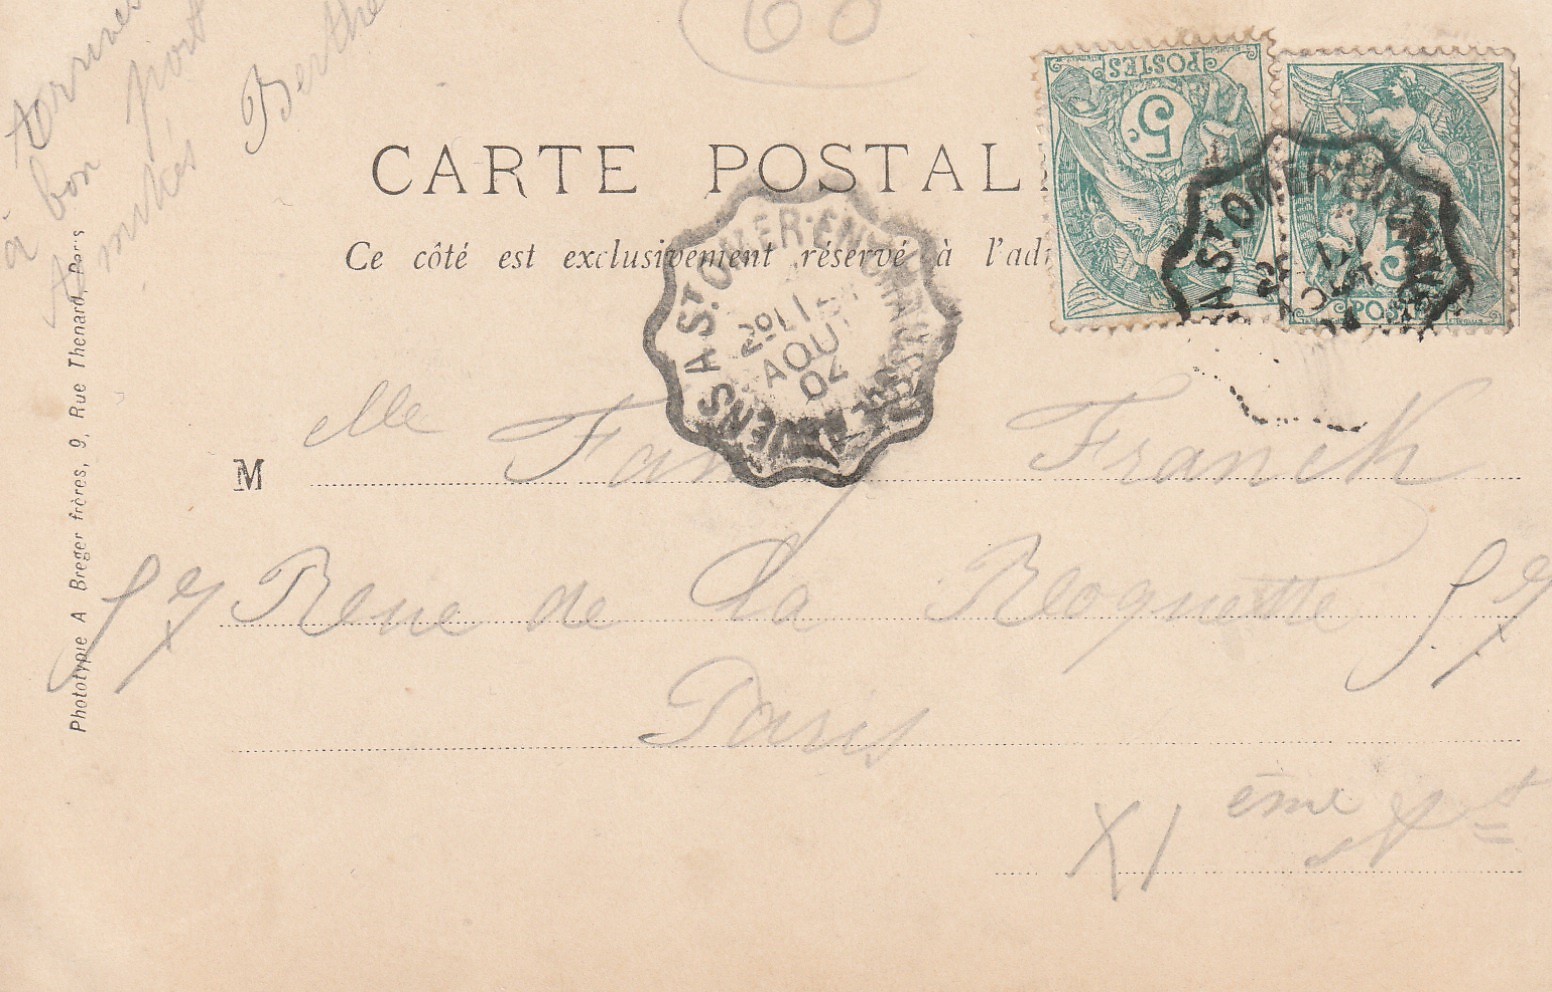 arrivée
à bon port
Amitiés
Berthe
60
CARTE POSTAL
Ce côté est exclusivement réservé à l'ad
POSTES
5c
5
POST
A ST OMER
11
AOUT
04
A ST OMER
2º 11
AOUT
04
M elle Fanny Franck
57 Rue de La Roquette 57
Paris
XI ème Art
Phototypie A Breger frères, 9, Rue Thenard, Paris